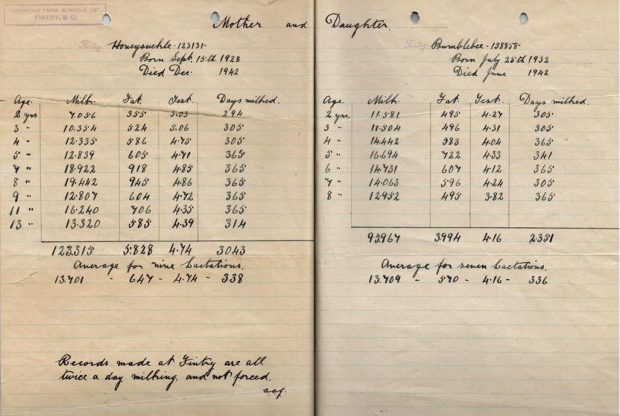 FAIRBRIDGE FARM SCHOOLS INC.
FINTRY, B.C.
Mother and Daughter.
Fintry Honeysuckle -123131-
Born Sept. 15th 1928
Died Dec. 1942
Age. Milk. Fat. Test. Days milked.
2 yrs. 7.056 355 5.03 294
3 " 10.354 524 5.06 305
4 " 12.335 586 4.75 305
5 " 12.839 605 4.71 365
7 " 18.922 918 4.85 365
8 " 19.442 945 4.86 365
9 " 12.807 604 4.72 365
11 " 16.240 706 4.35 365
13 " 13.320 585 4.39 314
123315 5.828 4.74 3043
Average for nine lactations.
13.701 - 647 - 4.74 - 338
Records made at Fintry are all
twice a day milking, and not forced.
Fintry Bumblebee -138858-
Born July 25th 1932
Died June 1942
Age. Milk. Fat. Test. Days milked.
2 yrs. 11.581 495 4.27 305
3 " 11.504 496 4.31 305
4 " 14.442 583 4.04 365
5 " 16.694 722 4.33 341
6 " 14.731 607 4.12 365
7 " 14.063 596 4.24 305
8 " 12.952 495 3.82 365
95967 3994 4.16 2351
Average for seven lactations.
13.709 - 570 - 4.16 - 336